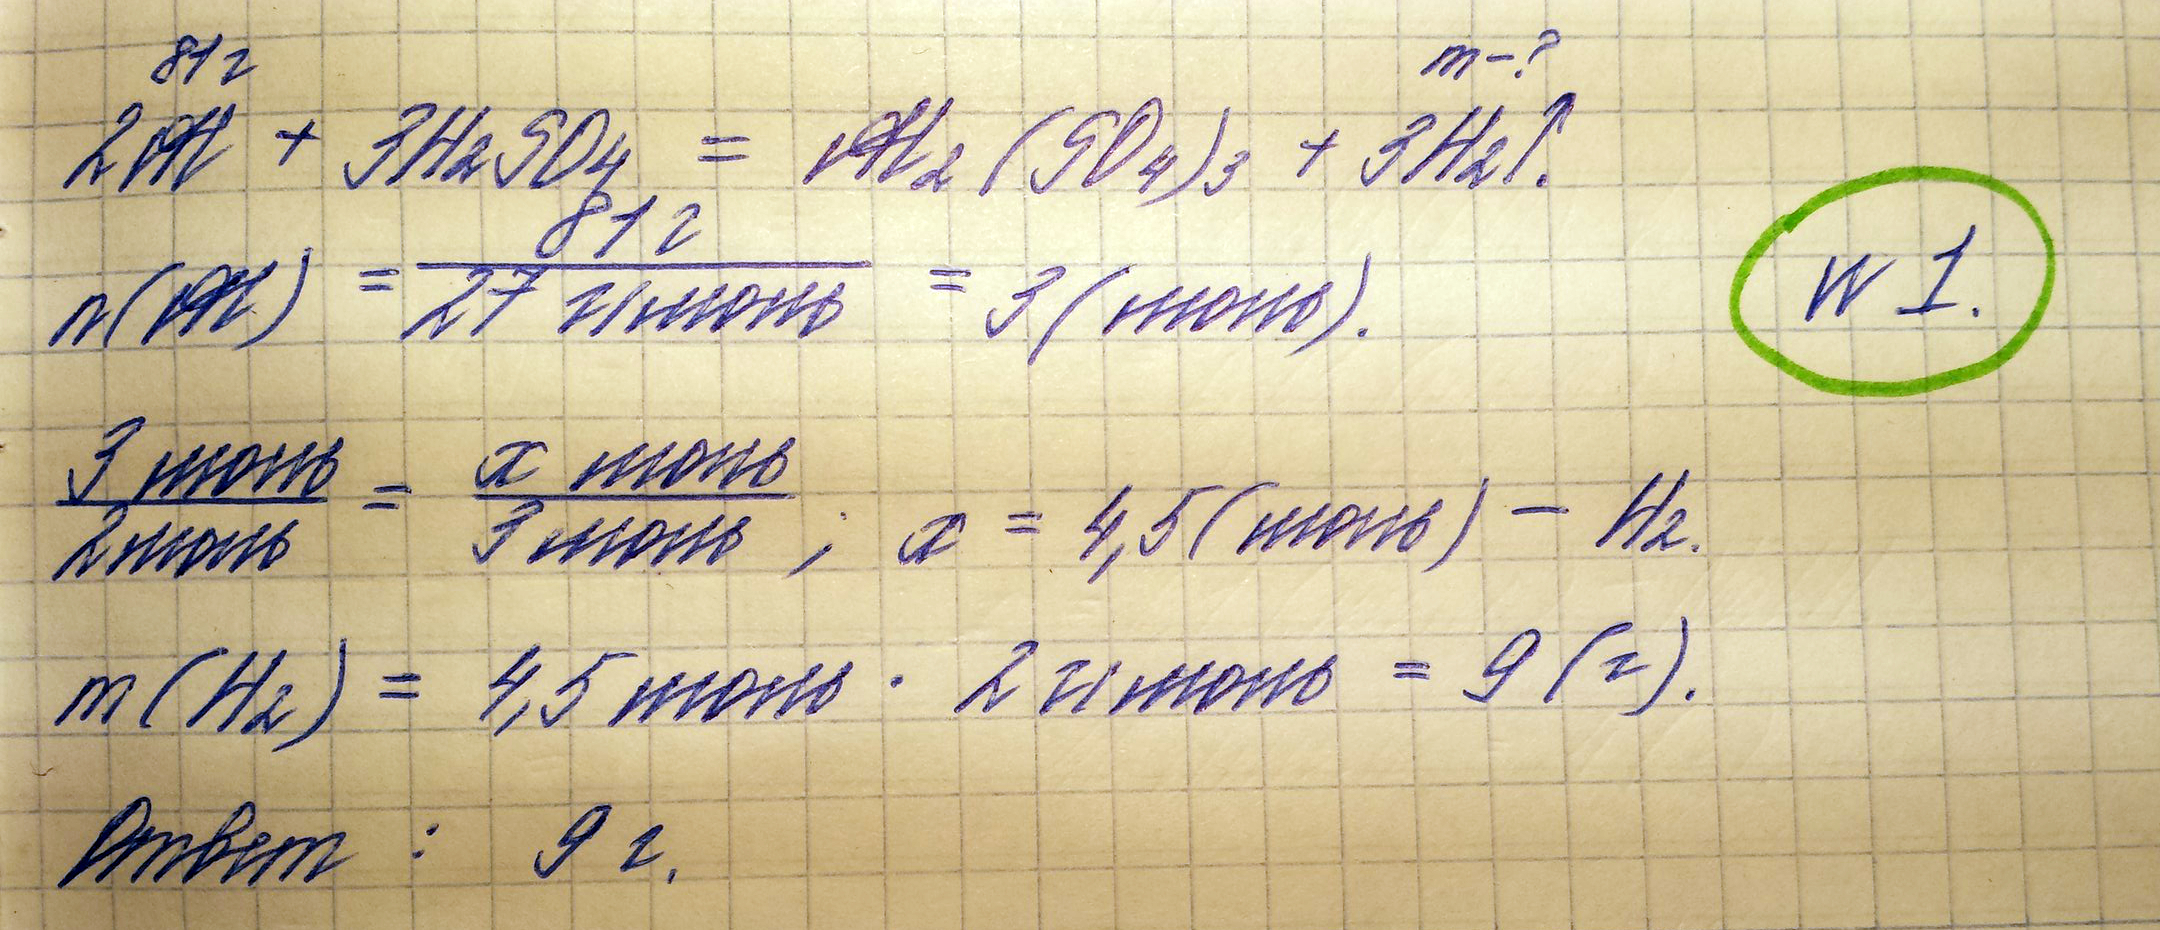 81 г
m-?
2Al + 3H₂SO₄ = Al₂(SO₄)₃ + 3H₂↑.
n(Al) = 81 г / 27 г/моль = 3 (моль).
N 1.
3 моль / 2 моль = x моль / 3 моль ; x = 4,5 (моль) - H₂.
m(H₂) = 4,5 моль · 2 г/моль = 9 (г).
Ответ : 9 г.